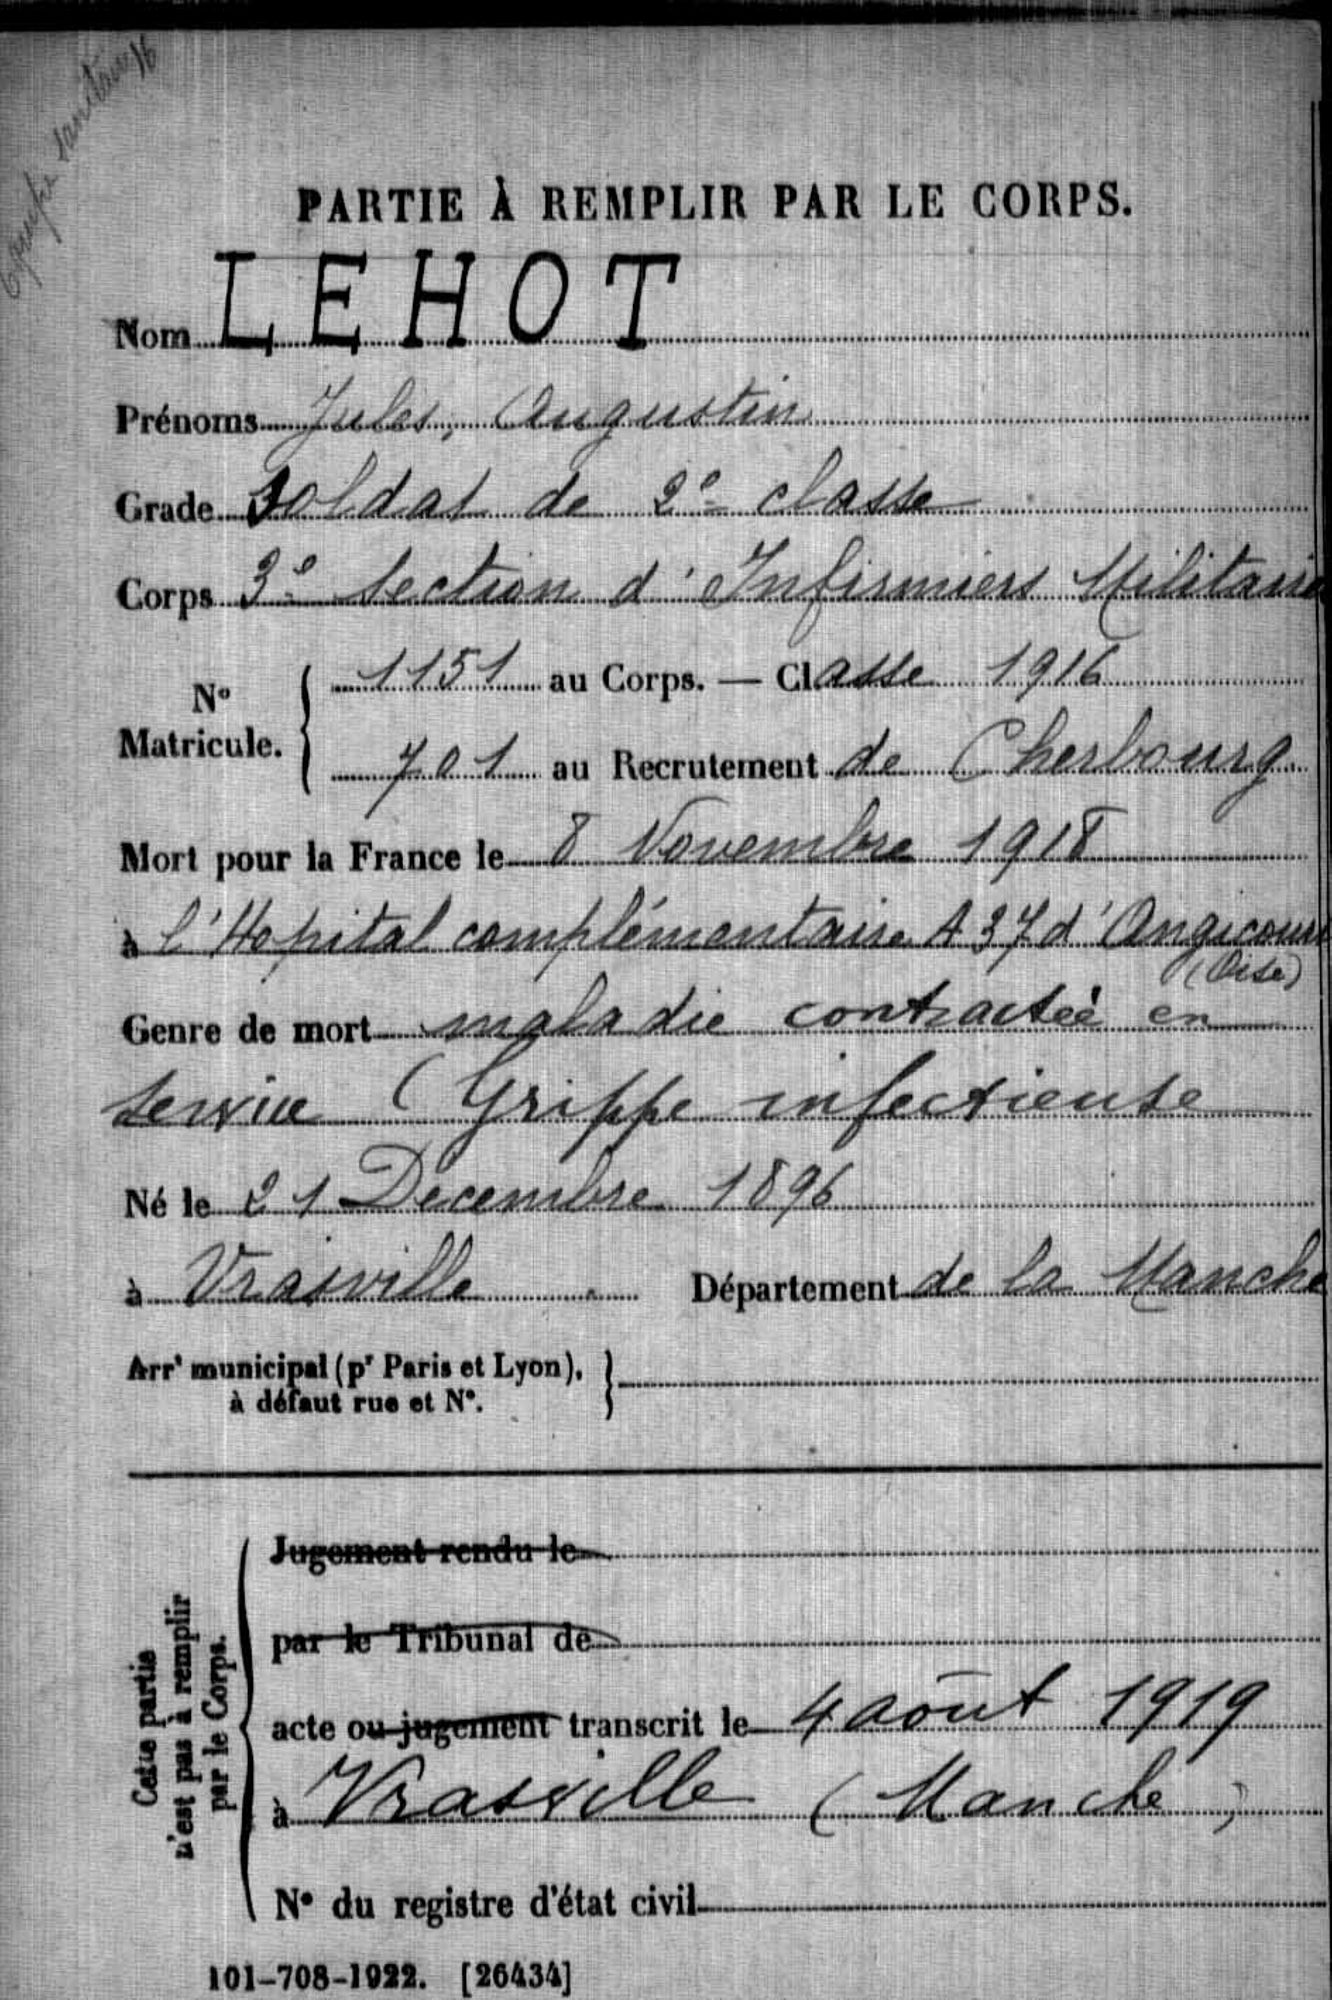 Groupe sanitaire 16
PARTIE À REMPLIR PAR LE CORPS.
Nom LEHOT
Prénoms Jules, Augustin
Grade Soldat de 2e classe
Corps 3e Section d'Infirmiers Militaires
N° Matricule. 1151 au Corps. — Classe 1916
701 au Recrutement de Cherbourg
Mort pour la France le 8 Novembre 1918
à l'Hopital complémentaire A 37 d'Angicourt
(Oise)
Genre de mort maladie contractée en
service (Grippe infectieuse
Né le 21 Décembre 1896
à Vrasville Département de la Manche
Arrt municipal (pr Paris et Lyon),
à défaut rue et N°.
Cette partie
n'est pas à remplir
par le Corps.
Jugement rendu le
par le Tribunal de
acte ou jugement transcrit le 4 août 1919
à Vrasville (Manche)
N° du registre d'état civil
101-708-1922. [26434]